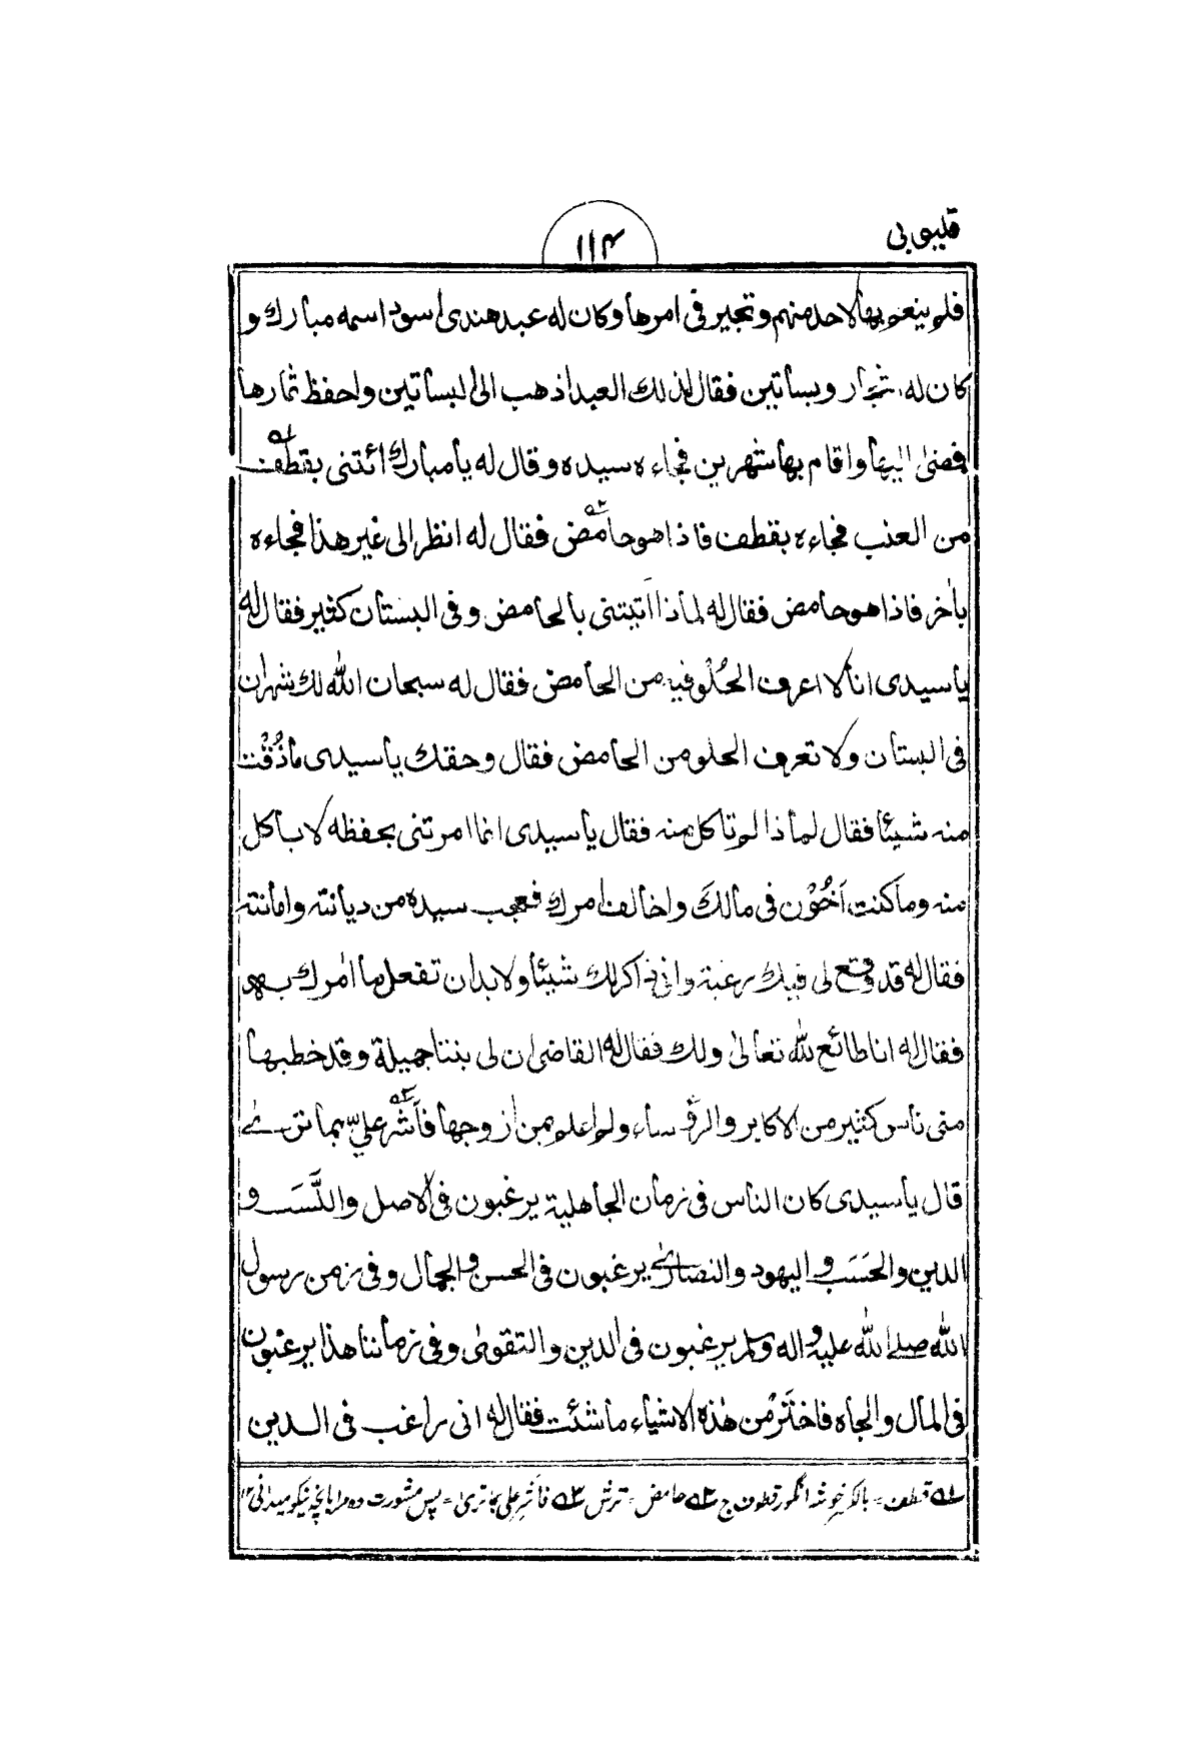 قليوبى
١١٤
فلم ينعم بها لاحد منهم وتحير فى امرها وكان له عبد هندى اسود اسمه مبارك و
كان له وبساتين فقال لذلك العبد اذهب الى البساتين واحفظ ثمارها
فمضىٰ اليها واقام بها شهرين فجاءه سيده وقال له يا مبارك ائتنى بقطف
من العنب فجاءه بقطف فاذا هو حامض فقال له انظر الى غير هذا فجاءه
باٰخر فاذا هو حامض فقال له لماذا اَتيتنى بالحامض وفى البستان كثير فقال له
يا سيدى انا لا اعرف الحُلْو فيه من الحامض فقال له سبحان الله لك شهران
فى البستان ولا تعرف الحلو من الحامض فقال وحقك يا سيدى ما ذُقْت
منه شيئا فقال لماذا لم تاكل منه فقال يا سيدى انما امرتنى بحفظه لا باكل
منه وما كنت اَخُوْن فى مالكَ واخالف امرك فعجب سيده من ديانته وامانته
فقال له قد وقع لى فيك رغبة وانى ذاكر لك شيئا ولا بد ان تفعل ما اٰمرك به
فقال له انا طائع لله تعالىٰ ولك فقال له القاضى ان لى بنتا جميلة وقد خطبها
منى ناس كثير من الاكابر والرؤساء ولم اعلم بمن ازوجها فاَشْر علىّ بما ترىٰ
قال يا سيدى كان الناس فى زمان الجاهلية يرغبون فى الاصل والنَّسَب و
الدين والحَسَب و اليهود والنصارىٰ يرغبون فى الحسن والجمال وفى زمن رسول
الله صلے الله عليه واٰله وسلم يرغبون فى الدين والتقوىٰ وفى زماننا هذا يرغبون
فى المال والجاه فاختَرْ من هٰذه الاشياء ما شئت فقال له انى راغب فى الدين
لـه قطف = بالكسر خوشۂ انگور قطوف ج ۲ـه حامض = ترش ۳ـه فاشر على بما ترىٰ = پس مشورت ده مرا بانچه نيكو ميدانى ۱۲